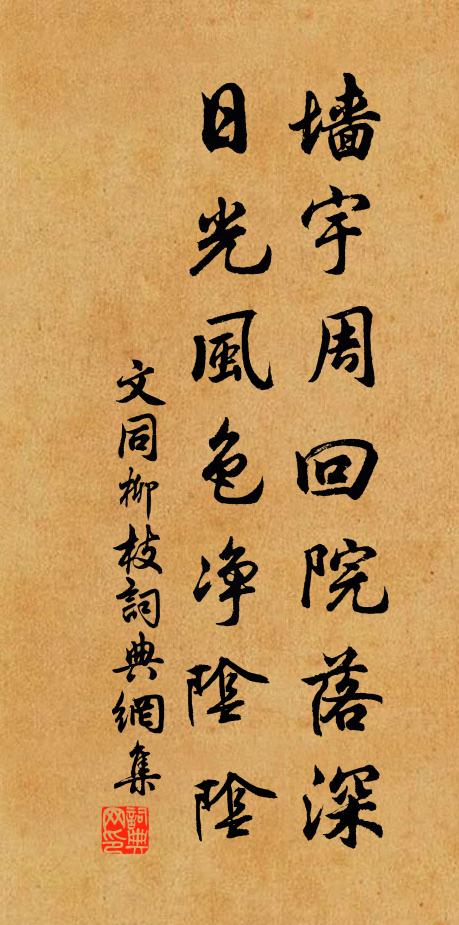 墙宇周回院落深
日光風色净陰陰
文同柳枝詞典網集
詞典网印